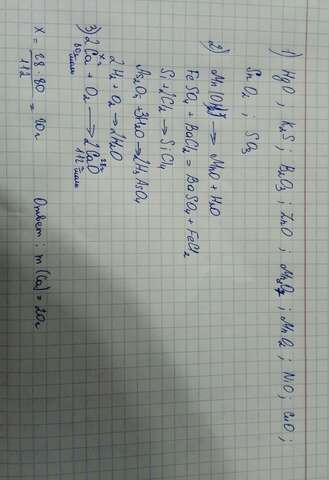 1) HgO ; K₂S ; B₂O₃ ; ZnO ; Mn₂O₇ ; MnO₂ ; NiO ; CuO ;
SnO₂ ; SO₃
2) Mn(OH)₂ → MnO + H₂O
FeSO₄ + BaCl₂ = BaSO₄ + FeCl₂
Si + 2Cl₂ → SiCl₄
As₂O₅ + 3H₂O → 2H₃AsO₄
2H₂ + O₂ → 2H₂O
x г 28г
3) 2Ca + O₂ → 2CaO
80г/моль 112 г/моль
x = 28 · 80 / 112 = 20г Ответ: m (Ca) = 20г